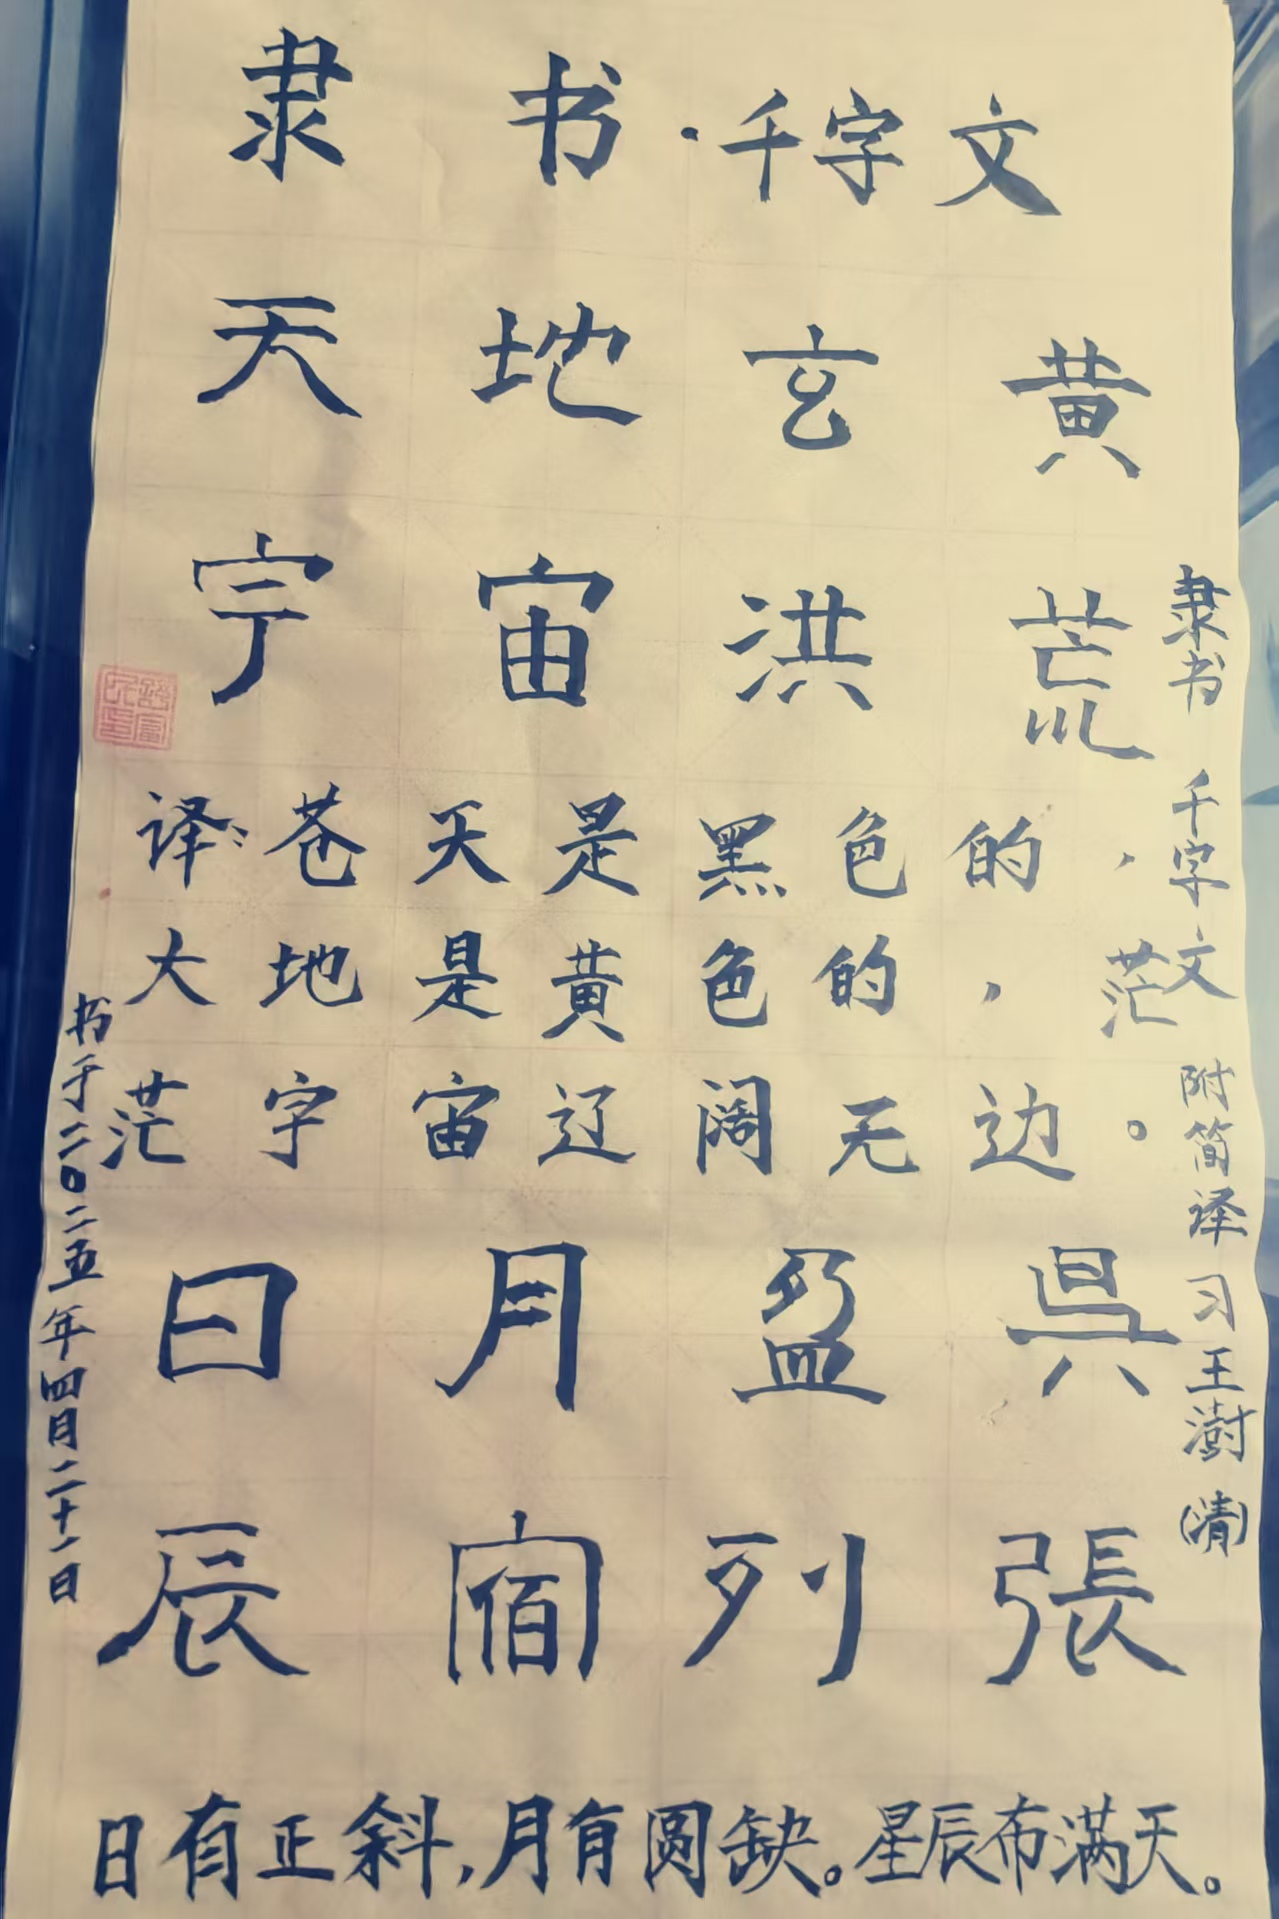 隶书·千字文
天地玄黄
宇宙洪荒
译:苍天是黑色的，
大地是黄色的，茫
茫宇宙辽阔无边。
日月盈昃
辰宿列張
日有正斜，月有圆缺。星辰布满天。
隶书 千字文 附简译 习王澍（清）
书于二〇二五年四月二十一日